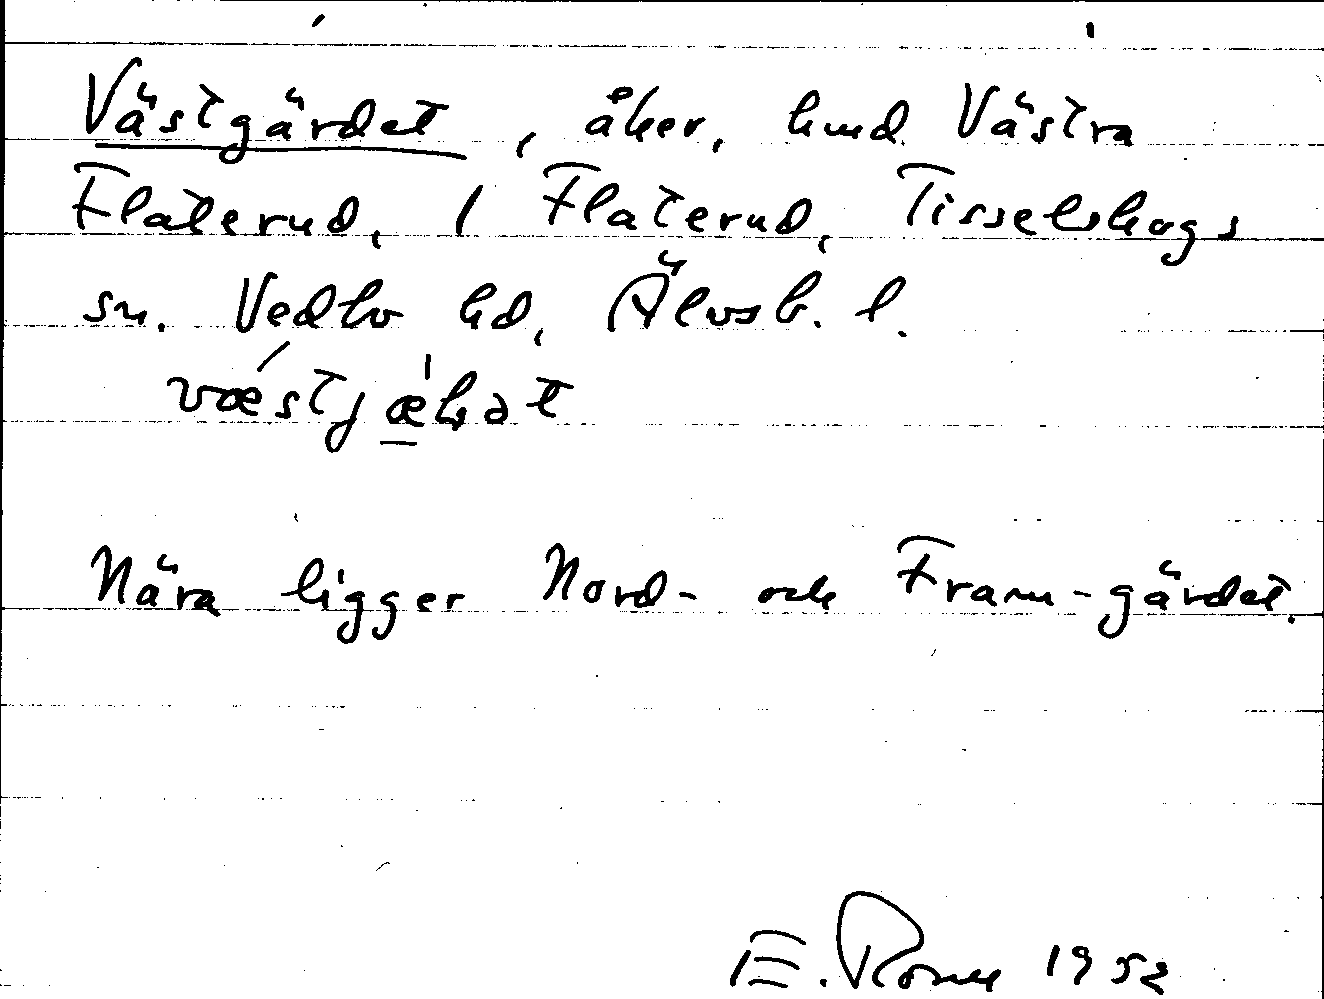 Västgärdet, åker, hmd Västra
Flaterud, 1 Flaterud, Tisselskogs
sn. Vedbo hd, Älvsb. l.
Nära ligger Nord- och Fram-gärdet.
E. 1952